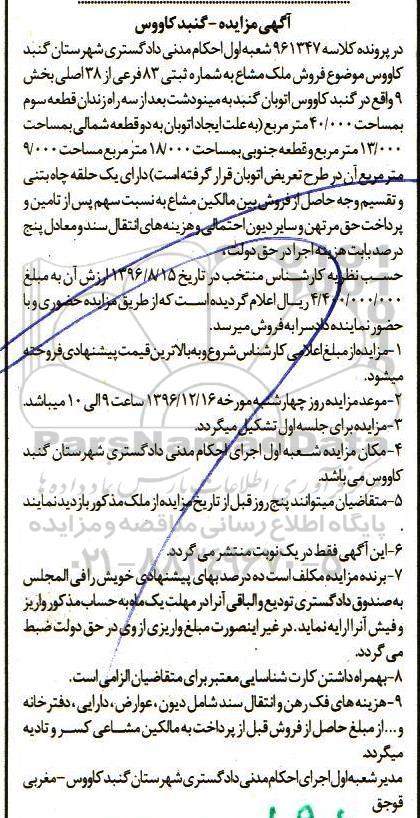 آگهی مزایده - گنبد کاووس
در پرونده کلاسه ۹۶۱۳۴۷ شعبه اول احکام مدنی دادگستری شهرستان گنبد
کاووس موضوع فروش ملک مشاع به شماره ثبتی ۸۳ فرعی از ۳۸ اصلی بخش
۹ واقع در گنبد کاووس اتوبان گنبد به مینودشت بعد از سه راه زندان قطعه سوم
بمساحت ۴۰/۰۰۰ متر مربع (به علت ایجاد اتوبان به دو قطعه شمالی بمساحت
۱۳/۰۰۰ متر مربع و قطعه جنوبی بمساحت ۱۸/۰۰۰ متر مربع مساحت ۹/۰۰۰
متر مربع آن در طرح تعریض اتوبان قرار گرفته است) دارای یک حلقه چاه بتنی
و تقسیم وجه حاصل از فروش بین مالکین مشاع به نسبت سهم پس از تامین و
پرداخت حق مرتهن و سایر دیون احتمالی و هزینه های انتقال سند و معادل پنج
درصد بابت هزینه اجرا در حق دولت،
حسب نظریه کارشناس منتخب در تاریخ ۱۳۹۶/۸/۱۵ ارزش آن به مبلغ
۴/۴۰۰/۰۰۰/۰۰۰ ریال اعلام گردیده است که از طریق مزایده حضوری و با
حضور نماینده دادسرا به فروش میرسد.
۱-مزایده از مبلغ اعلامی کارشناس شروع و به بالاترین قیمت پیشنهادی فروخته
میشود.
۲-موعد مزایده روز چهارشنبه مورخه ۱۳۹۶/۱۲/۱۶ ساعت ۹ الی ۱۰ میباشد.
۳-مزایده برای جلسه اول تشکیل میگردد.
۴-مکان مزایده شعبه اول اجرای احکام مدنی دادگستری شهرستان گنبد
کاووس می باشد.
۵-متقاضیان میتوانند پنج روز قبل از تاریخ مزایده از ملک مذکور بازدید نمایند
.
۶-این آگهی فقط در یک نوبت منتشر می گردد.
۷-برنده مزایده مکلف است ده درصد بهای پیشنهادی خویش را فی المجلس
به صندوق دادگستری تودیع و الباقی آنرا در مهلت یک ماه به حساب مذکور واریز
و فیش آنرا ارایه نماید. در غیر اینصورت مبلغ واریزی از وی در حق دولت ضبط
می گردد.
۸-بهمراه داشتن کارت شناسایی معتبر برای متقاضیان الزامی است.
۹-هزینه های فک رهن و انتقال سند شامل دیون، عوارض، دارایی، دفترخانه
و... از مبلغ حاصل از فروش قبل از پرداخت به مالکین مشاعی کسر و تادیه
میگردد.
مدیر شعبه اول اجرای احکام مدنی دادگستری شهرستان گنبد کاووس - مغربی
قوجق
ParsNamadData
پایگاه اطلاع رسانی مناقصه و مزایده